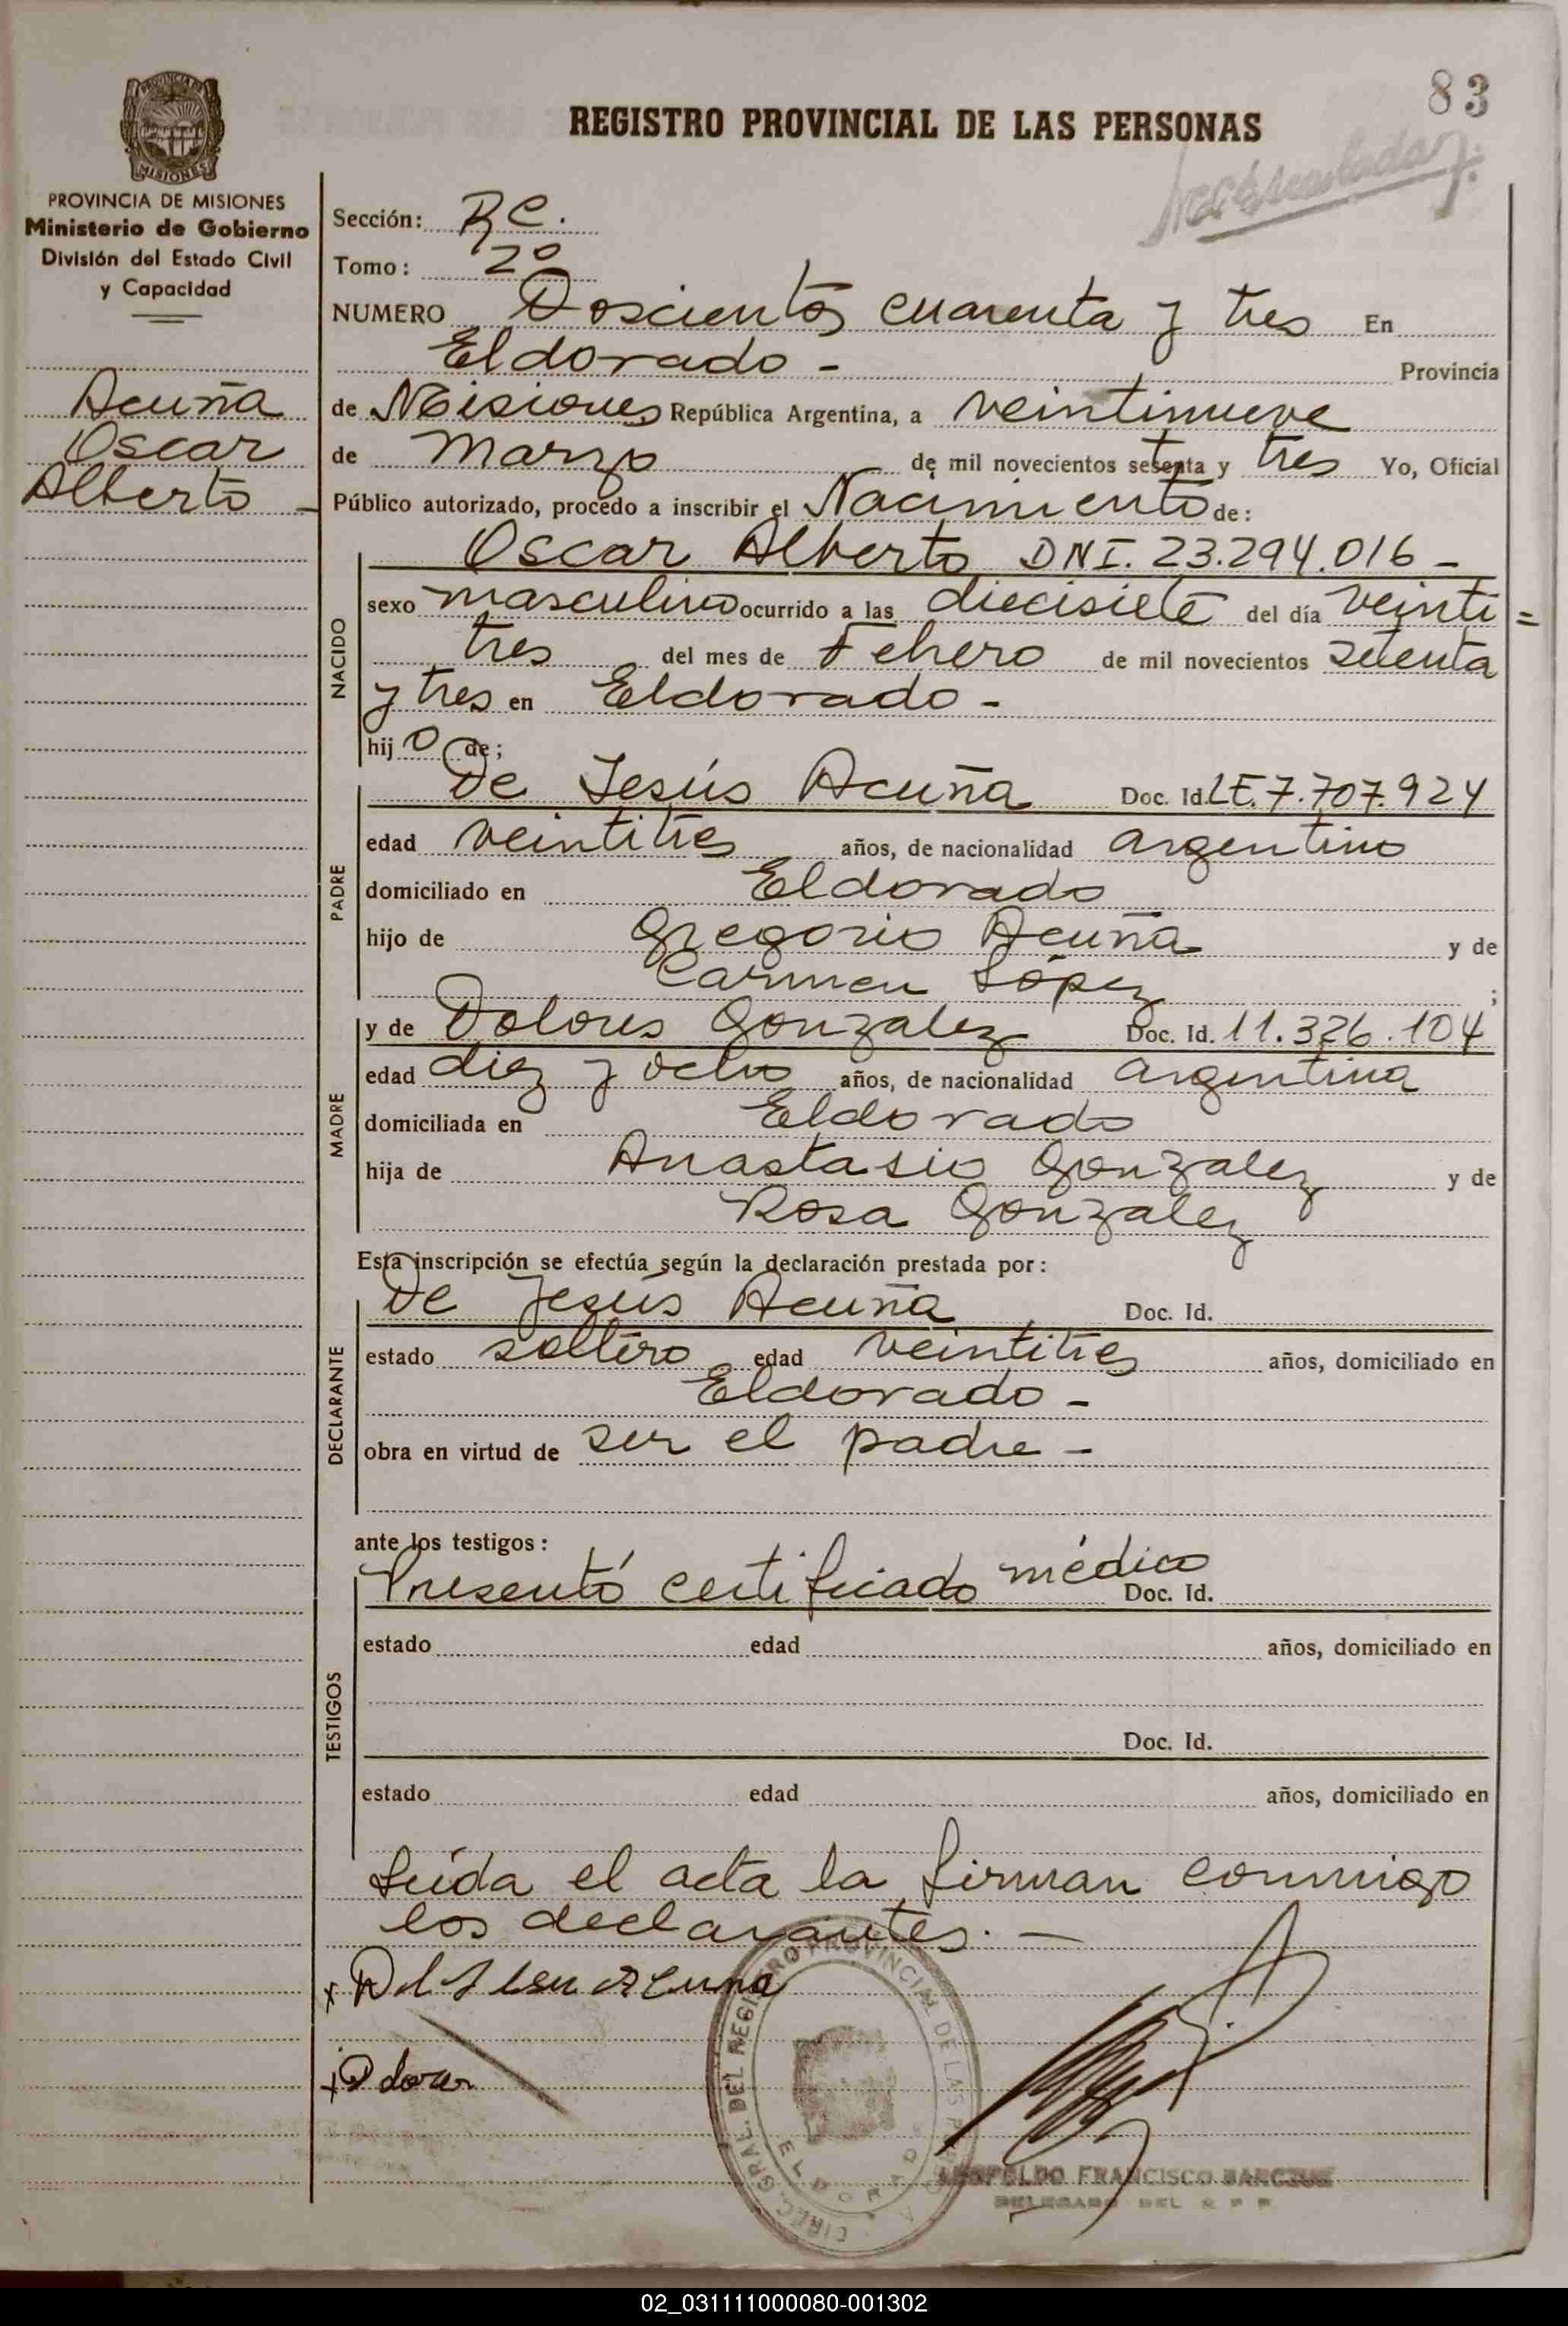 83
REGISTRO PROVINCIAL DE LAS PERSONAS
PROVINCIA DE MISIONES
Ministerio de Gobierno
División del Estado Civil
y Capacidad
Acuña
Oscar
Alberto -
Sección: RC.
Tomo: 2º
NUMERO Doscientos cuarenta y tres En
Eldorado - Provincia
de Misiones República Argentina, a veintinueve
de Marzo de mil novecientos setenta y tres Yo, Oficial
Público autorizado, procedo a inscribir el Nacimiento de:
NACIDO
Oscar Alberto DNI. 23.294.016 -
sexo masculino ocurrido a las diecisiete del día veinti=
tres del mes de Febrero de mil novecientos setenta
y tres en Eldorado -
hijo de;
PADRE
De Jesús Acuña Doc. Id. LE. 7.707.924
edad veintitres años, de nacionalidad argentino
domiciliado en Eldorado
hijo de Gregorio Acuña y de
Carmen López ;
MADRE
y de Dolores Gonzalez Doc. Id. 11.326.104
edad diez y ocho años, de nacionalidad argentina
domiciliada en Eldorado
hija de Anastasio Gonzalez y de
Rosa Gonzalez
Esta inscripción se efectúa según la declaración prestada por:
DECLARANTE
De Jesús Acuña Doc. Id.
estado soltero edad veintitres años, domiciliado en
Eldorado -
obra en virtud de ser el padre -
ante los testigos:
TESTIGOS
Presentó certificado médico Doc. Id.
estado edad años, domiciliado en
Doc. Id.
estado edad años, domiciliado en
Leída el acta la firman conmigo
los declarantes. -
DIREC. GRAL. DEL REGISTRO PROVINCIAL DE LAS
ELDORADO
FRANCISCO
DELEGADO DEL R P P
02_031111000080-001302